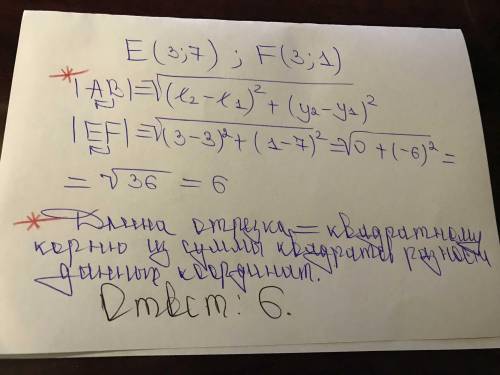 E(3;7) ; F(3;1)
* |AB| = √(x₂-x₁)² + (y₂-y₁)²
|EF| = √(3-3)² + (1-7)² = √0 + (-6)² =
= √36 = 6
* Длина отрезка = квадратному
корню из суммы квадратов разности
данных координат.
Ответ: 6.